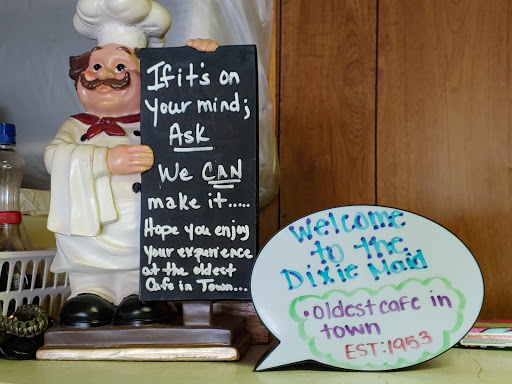 If it's on
your mind;
Ask
We CAN
make it.....
Hope you enjoy
your experience
at the oldest
Cafe in Town...
Welcome
to the
Dixie Maid
• oldest cafe in
town
EST:1953